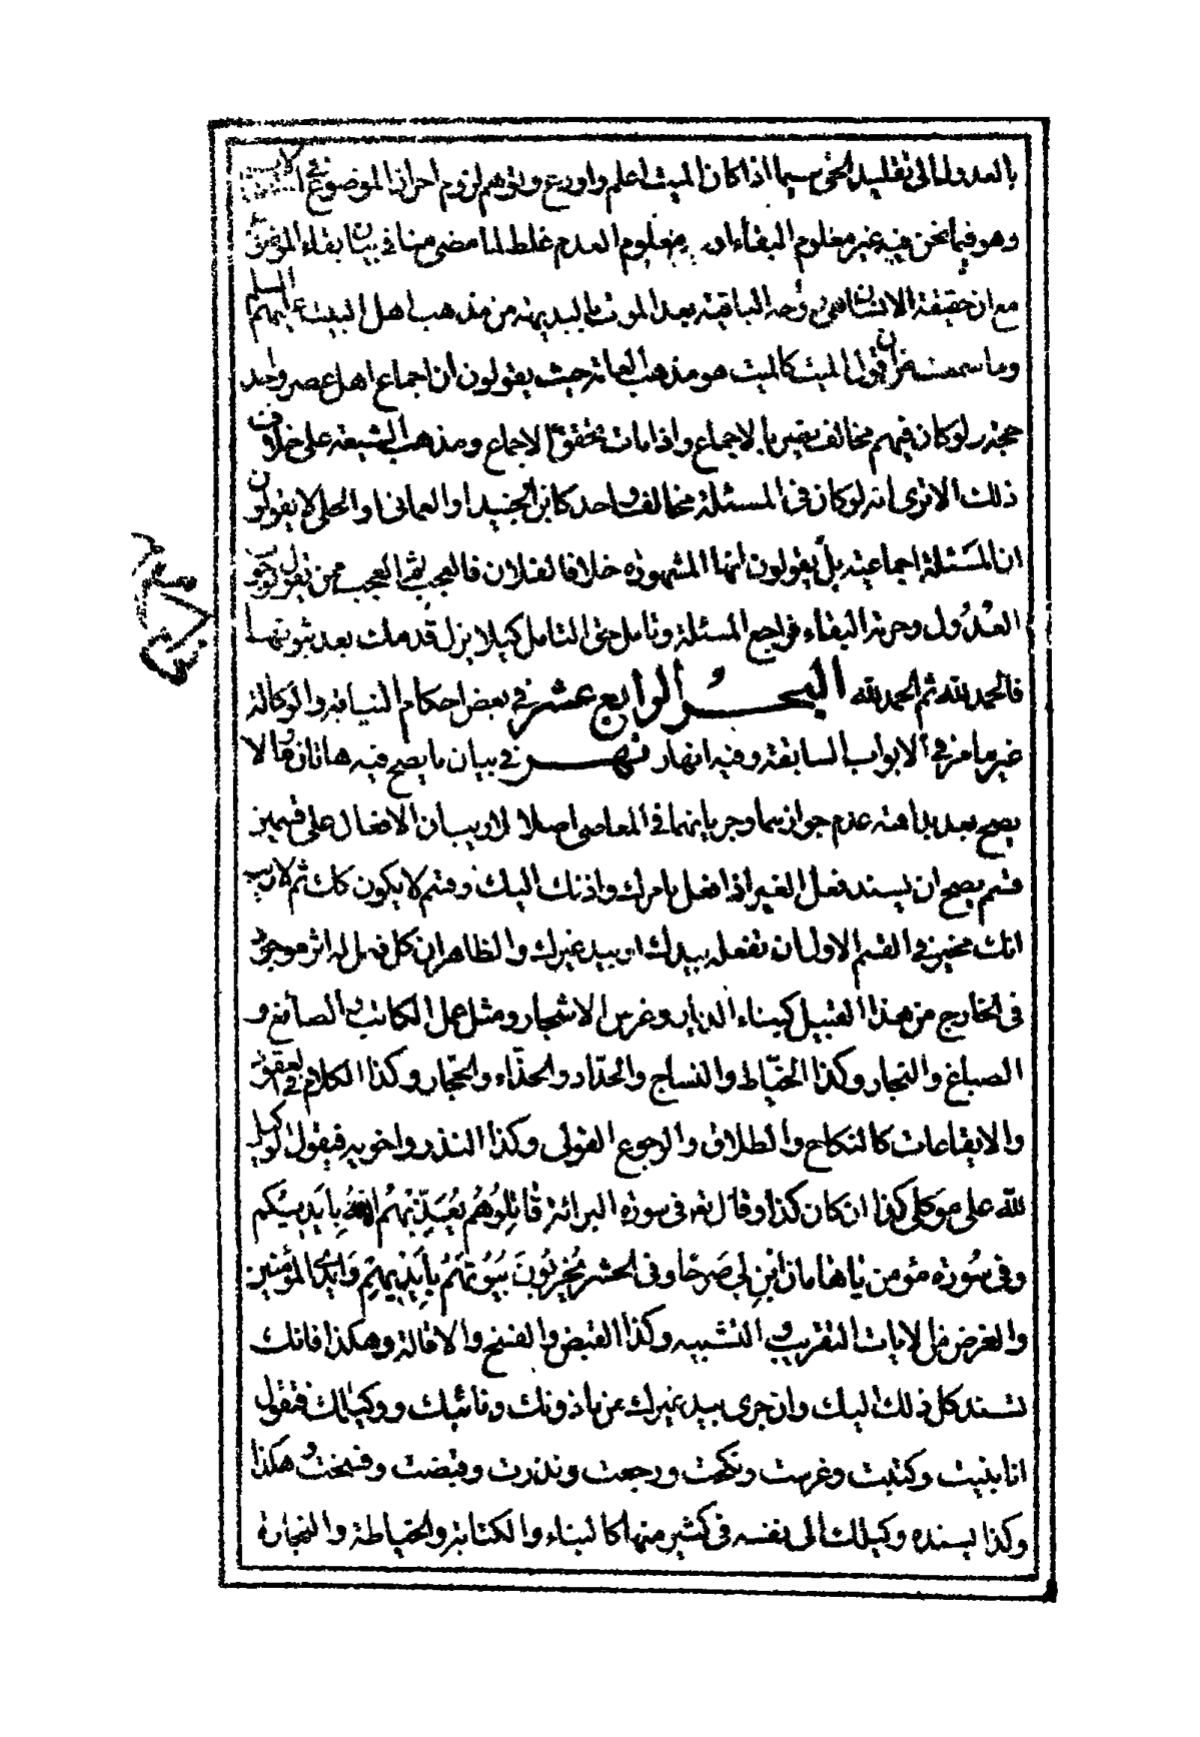 بالعدول الى تقليد الحي سيما اذا كان الميت اعلم واورع وتوهم لزوم احراز الموضوع في
وهو فيما نحن فيه غير معلوم البقاء او معلوم العدم غلط لما مضى منا في بيان بقاء الموضوع
مع ان حقيقة الانسان هي روحه الباقية بعد الموت بالبديهة من مذهب اهل البيت عليهم السلم
وما سمعت من ان قول الميت كالميت هو مذهب العامة حيث يقولون ان اجماع اهل عصر واحد
حجة ولو كان فيهم مخالف يضر بالاجماع واذا مات تحقق الاجماع ومذهب الشيعة على خلاف
ذلك الا ترى انه لو كان في المسئلة مخالف واحد كابن الجنيد او العماني او الحلي لا يقولون
ان المسئلة اجماعية بل يقولون انها المشهورة خلافا لفلان فالعجب ثم العجب ممن يقول بوجوب
العدول وحرمة البقاء فراجع المسئلة وتامل حق التامل كيلا يزل قدمك بعد ثبوتها
فالحمد لله ثم الحمد لله البحر الرابع عشر في بعض احكام النيابة والوكالة
غير ما مر في الابواب السابقة وفيه انهار نهر في بيان ما يصح فيه هاتان وما لا
يصح بعد بداهة عدم جوازهما وجريانهما في المعاصي اصلا لا ريب ان الافعال على قسمين
قسم يصح ان يسند فعل الغير اذا فعل بامرك واذنك اليك وقسم لا يكون كك ثم لا ريب
انك مخير في القسم الاول ان تفعله بيدك او بيد غيرك والظاهر ان كل فعل له اثر موجود
في الخارج من هذا القبيل كبناء الديار وغرس الاشجار ومثل عمل الكاتب والصائغ و
الصباغ والنجار وكذا الخياط والنساج والحداد والحذاء والحجار وكذا الكلام في العقود
والايقاعات كالنكاح والطلاق والرجوع القولي وكذا النذر واخويه فيقول الوكيل
لله على موكلي كذا ان كان كذا وقال تعه في سورة البرائة قاتلوهم يعذبهم الله بايديكم
وفي سورة مؤمن يا هامان ابن لي صرحا وفي الحشر يخربون بيوتهم بايديهم وايدي المؤمنين
والغرض من الايات التقريب والتشبيه وكذا القبض والفسخ والاقالة وهكذا فانك
تسند كل ذلك اليك وان جرى بيد غيرك من ماذونك ونائبك ووكيلك فتقول
انا بنيت وكتبت وغرست ونكحت ورجعت ونذرت وقبضت وفسخت وهكذا
وكذا يسنده وكيلك الى نفسه في كثير منها كالبناء والكتابة والخياطة والنجارة